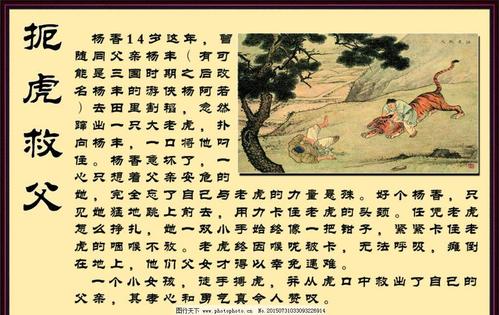 扼虎救父
杨香14岁这年,曾
随周父亲杨丰(有可
能是三国时期
名)去田里割稻,忽然
蹿出一只大老虎,扑
向杨丰,一口将他叼
住。杨香急坏了,一
心只想着父亲安危的
她,完全忘了自己与老虎的力量是殊。好个杨香,只
见她猛地跳上前去,用力卡住老虎的头颈。任凭老虎
怎么挣扎,她一双小手始终像一把钳子,紧紧卡住老
虎的咽喉不放。老虎终因喉咙被卡,无法呼吸,瘫倒
在地上,他们父女才得以幸免遇难。
一个小女孩,徒手搏虎,并从虎口中救出了自己的
父亲,其孝心和勇气真令人赞叹。
图行天下 www.photophoto.cn No.20150731033093226914